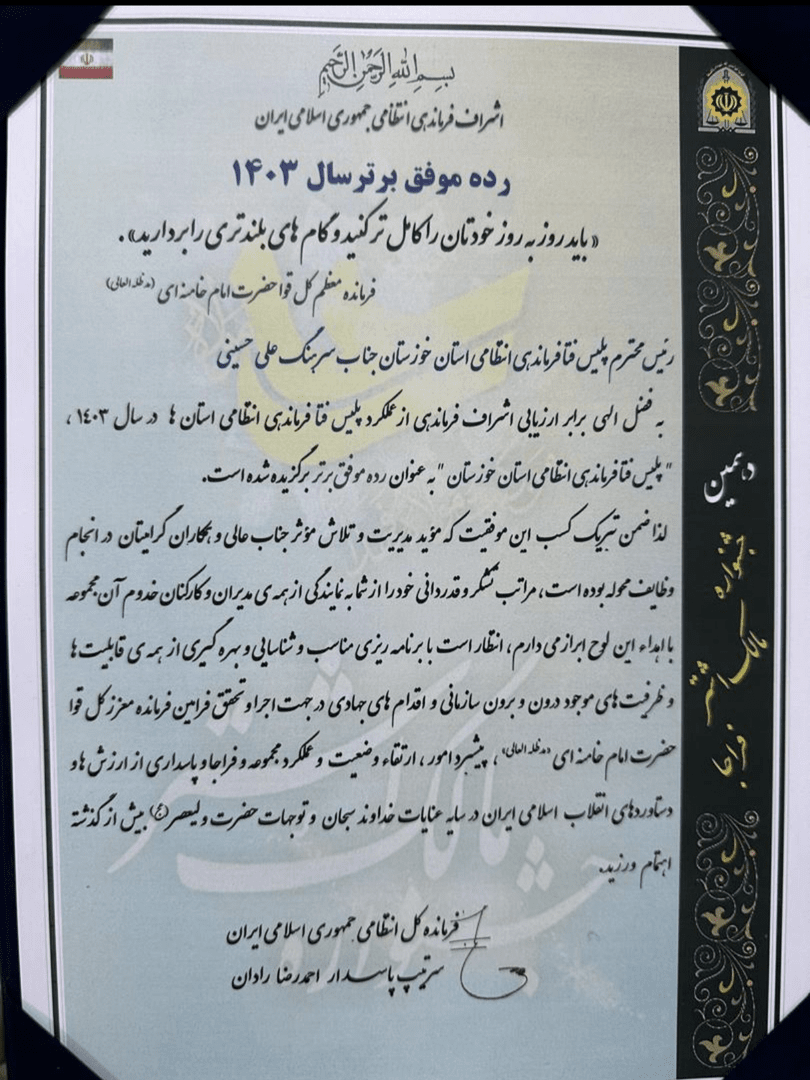 بسم الله الرحمن الرحیم
اشراف فرماندهی انتظامی جمهوری اسلامی ایران
رده موفق برتر سال ۱۴۰۳
«باید روز به روز خودتان را کامل تر کنید و گام های بلندتری را بردارید».
فرمانده معظم کل قوا حضرت امام خامنه ای (مدظله العالی)
رئیس محترم پلیس فتا فرماندهی انتظامی استان خوزستان جناب سرهنگ علی حسینی
به فضل الهی برابر ارزیابی اشراف فرماندهی از عملکرد پلیس فتا فرماندهی انتظامی استان ها در سال ۱۴۰۳ ،
"پلیس فتا فرماندهی انتظامی استان خوزستان" به عنوان رده موفق برتر برگزیده شده است.
لذا ضمن تبریک کسب این موفقیت که مؤید مدیریت و تلاش مؤثر جناب عالی و همکاران گرامیتان در انجام
وظایف محوله بوده است، مراتب تشکر و قدردانی خود را از شما به نمایندگی از همه ی مدیران و کارکنان خدوم آن مجموعه
با اهداء این لوح ابراز می دارم، انتظار است با برنامه ریزی مناسب و شناسایی و بهره گیری از همه ی قابلیت ها
و ظرفیت های موجود درون و برون سازمانی و اقدام های جهادی در جهت اجرا و تحقق فرامین فرمانده معزز کل قوا
حضرت امام خامنه ای (مدظله العالی) ، پیشبرد امور ، ارتقاء وضعیت و عملکرد مجموعه و فراجا و پاسداری از ارزش ها و
دستاوردهای انقلاب اسلامی ایران در سایه عنایات خداوند سبحان و توجهات حضرت ولیعصر (عج) بیش از گذشته
اهتمام ورزید.
فرمانده کل انتظامی جمهوری اسلامی ایران
سرتیپ پاسدار احمدرضا رادان
دهمین
جشنواره
مالک اشتر
فراجا
جشنواره مالک اشتر